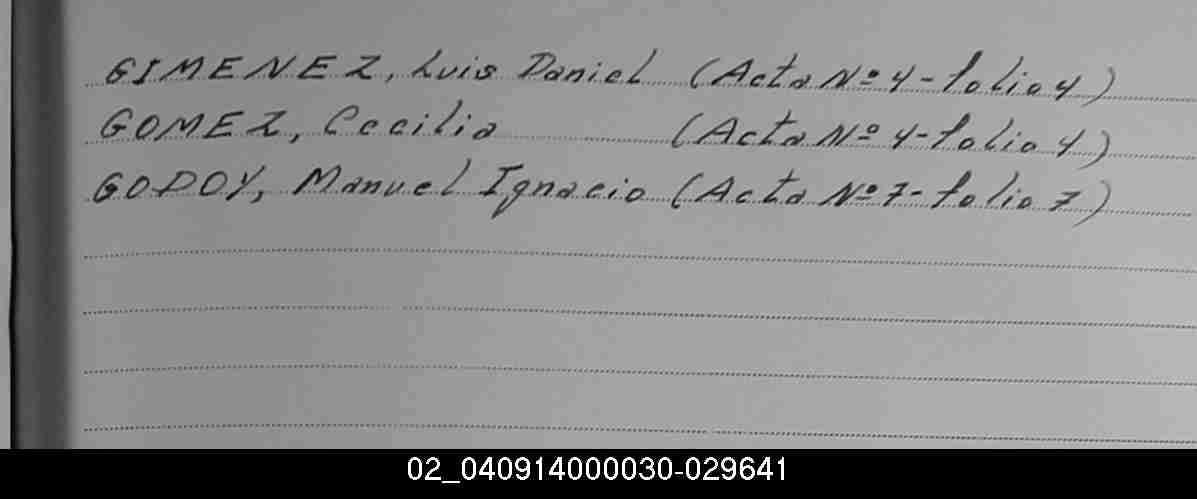 GIMENEZ, Luis Daniel (Acta Nº 4 - folio 4)
GOMEZ, Cecilia (Acta Nº 4 - folio 4)
GODOY, Manuel Ignacio (Acta Nº 7 - folio 7)
02_040914000030-029641